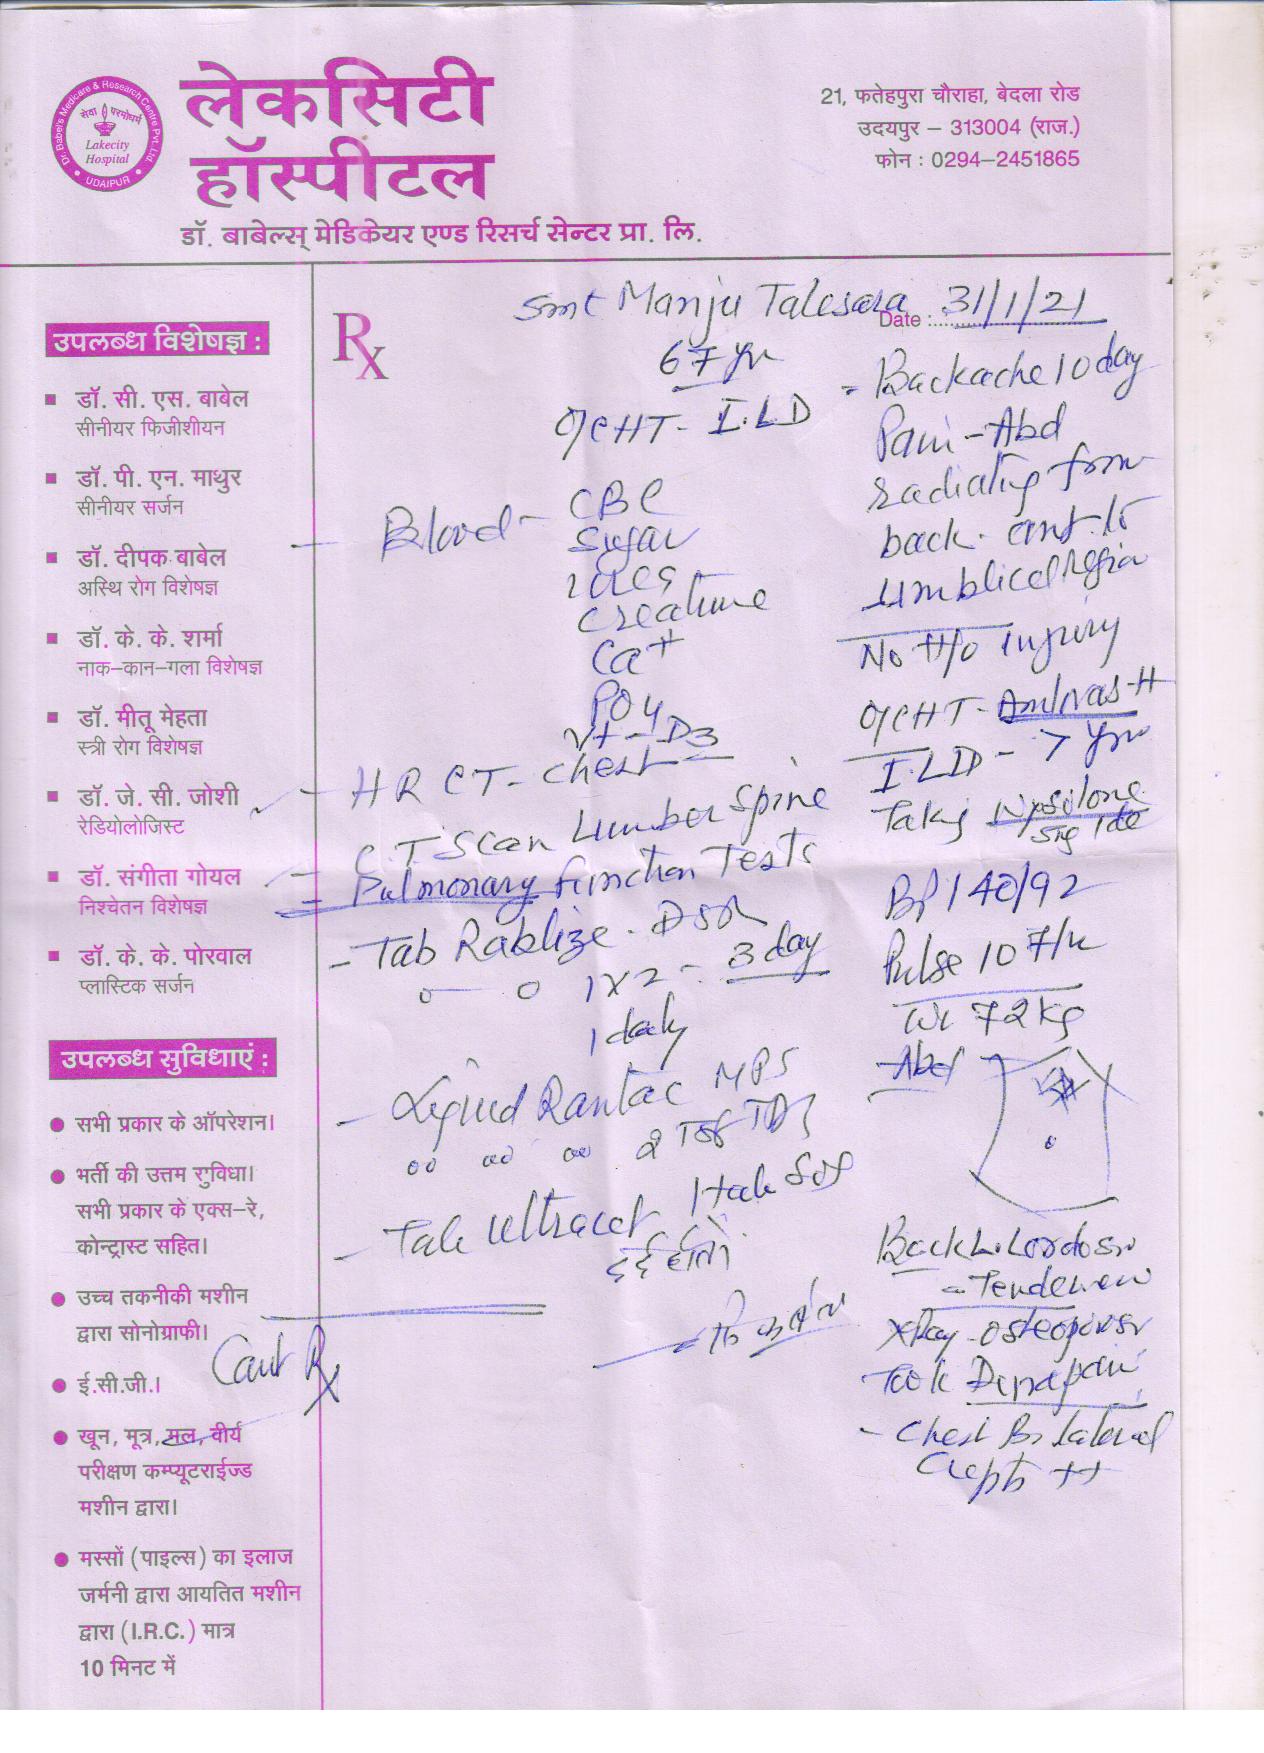 Dr. Babel's Medicare & Research Centre Pvt. Ltd.
सेवा परमोधर्म
Lakecity
Hospital
UDAIPUR
लेकसिटी
हॉस्पीटल
डॉ. बाबेल्स् मेडिकेयर एण्ड रिसर्च सेन्टर प्रा. लि.
21, फतेहपुरा चौराहा, बेदला रोड
उदयपुर – 313004 (राज.)
फोन : 0294–2451865
उपलब्ध विशेषज्ञ :
डॉ. सी. एस. बाबेल
सीनीयर फिजीशीयन
डॉ. पी. एन. माथुर
सीनीयर सर्जन
डॉ. दीपक बाबेल
अस्थि रोग विशेषज्ञ
डॉ. के. के. शर्मा
नाक–कान–गला विशेषज्ञ
डॉ. मीतू मेहता
स्त्री रोग विशेषज्ञ
डॉ. जे. सी. जोशी
रेडियोलोजिस्ट
डॉ. संगीता गोयल
निश्चेतन विशेषज्ञ
डॉ. के. के. पोरवाल
प्लास्टिक सर्जन
उपलब्ध सुविधाएं :
सभी प्रकार के ऑपरेशन।
भर्ती की उत्तम सुविधा।
सभी प्रकार के एक्स–रे,
कोन्ट्रास्ट सहित।
उच्च तकनीकी मशीन
द्वारा सोनोग्राफी।
ई.सी.जी.।
खून, मूत्र, मल, वीर्य
परीक्षण कम्प्यूटराईज्ड
मशीन द्वारा।
मस्सों (पाइल्स) का इलाज
जर्मनी द्वारा आयतित मशीन
द्वारा (I.R.C.) मात्र
10 मिनट में
Rx
Smt Manju Talesara Date : 31/1/21
67 yr
HT - I.L.D
Blood - CBC
Sugar
Urea
Creatinine
Ca+
PO4
Vt - D3
- HRCT - Chest
C.T Scan Lumber Spine
= Pulmonary function Tests
- Tab Rablize - DSR
1 x 2 - 3 day
1 daily
- Liquid Rantac MPS
2 Tsf TDS
- Tab Ultracet 1 tab SOS
दर्द हो तो
Cont Rx
- Backache 10 day
Pain - Abd
radiating from
back - ant. to
umblical region
No H/o injury
HT - Amlovas-H
I.LD - 7 yrs
Taking
BP 140/92
Pulse 107/m
Wt 72 kg
- Abd
Back L. Lordosis
- Tenderness
X Ray - Osteoporosis
Took Dynapar
- Chest Bilateral
Crepts ++